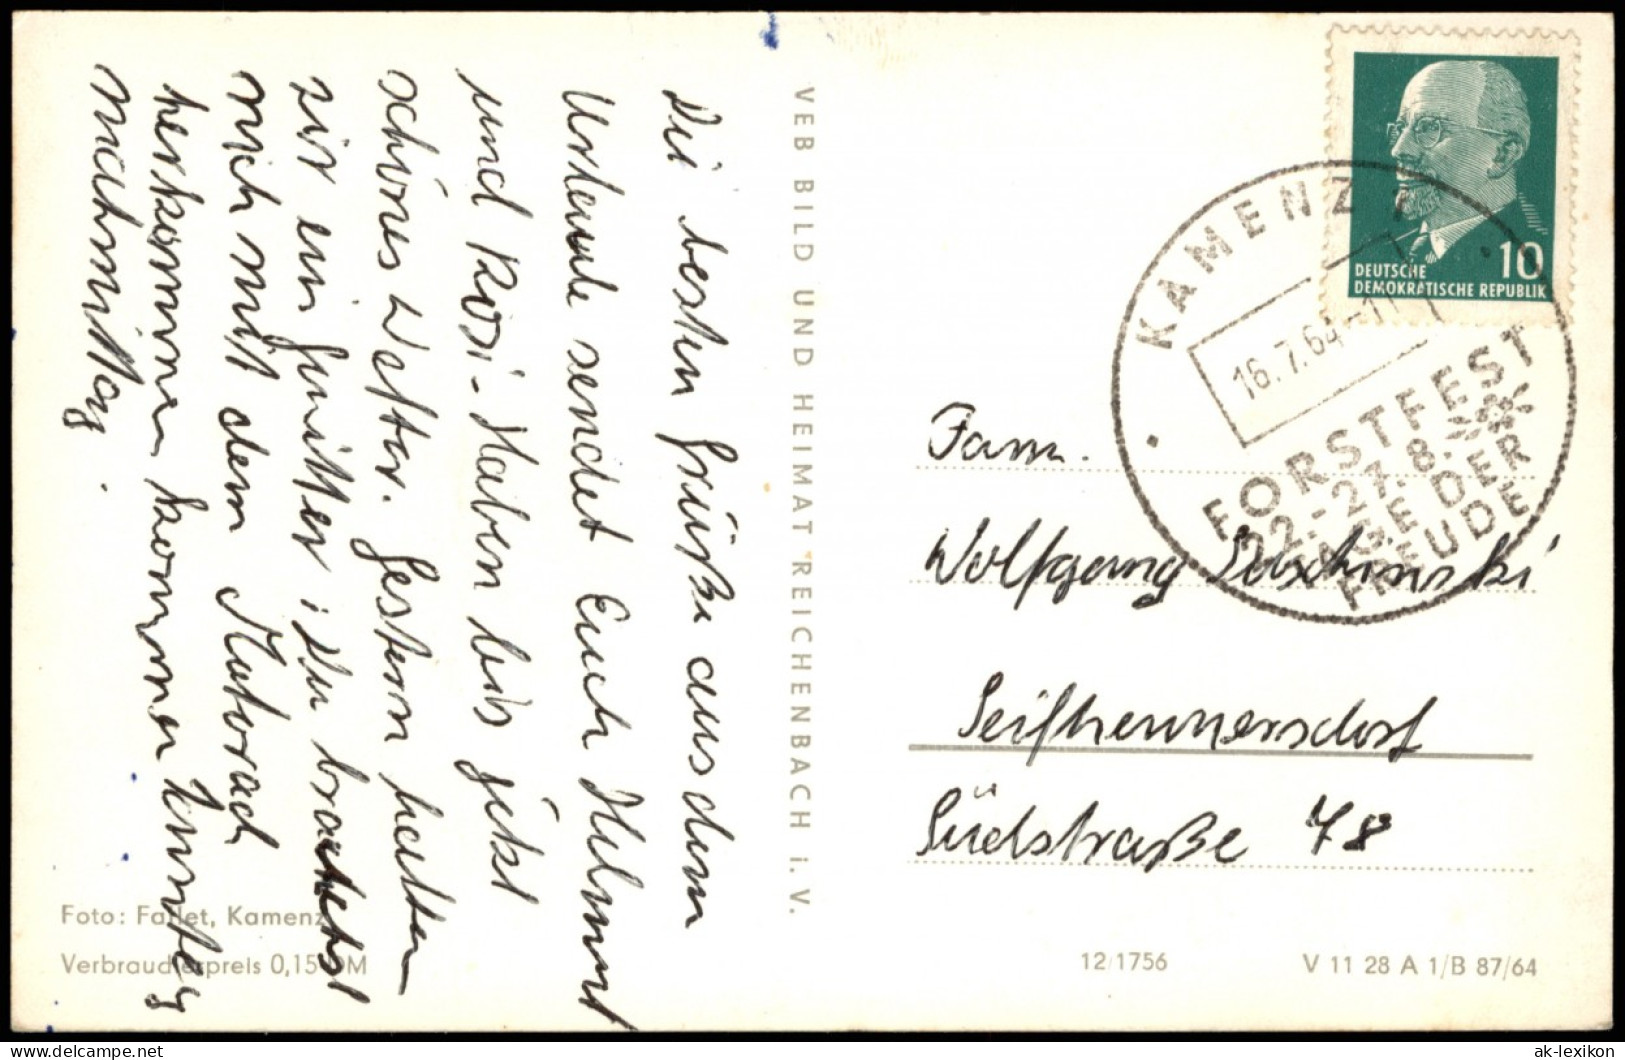 Die besten Grüße aus dem
Urlaub sendet Euch Helmut
und Rosi. Haben bis jetzt
schönes Wetter. Gestern hatten
wir ein Gewitter. Du brauchst
mich mit dem Motorrad
herkommen kommen
nachmittag.
Foto: Fallet, Kamenz
Verbraucherpreis 0,15 DM
VEB BILD UND HEIMAT REICHENBACH i. V.
10
DEUTSCHE
DEMOKRATISCHE REPUBLIK
KAMENZ 1
16.7.64-11
FORSTFEST
22.-27.8.
TAGE DER
FREUDE
Fam.
Wolfgang
Seifhennersdorf
Südstraße 78
12/1756
V 11 28 A 1/B 87/64
delcampe.net
ak-lexikon